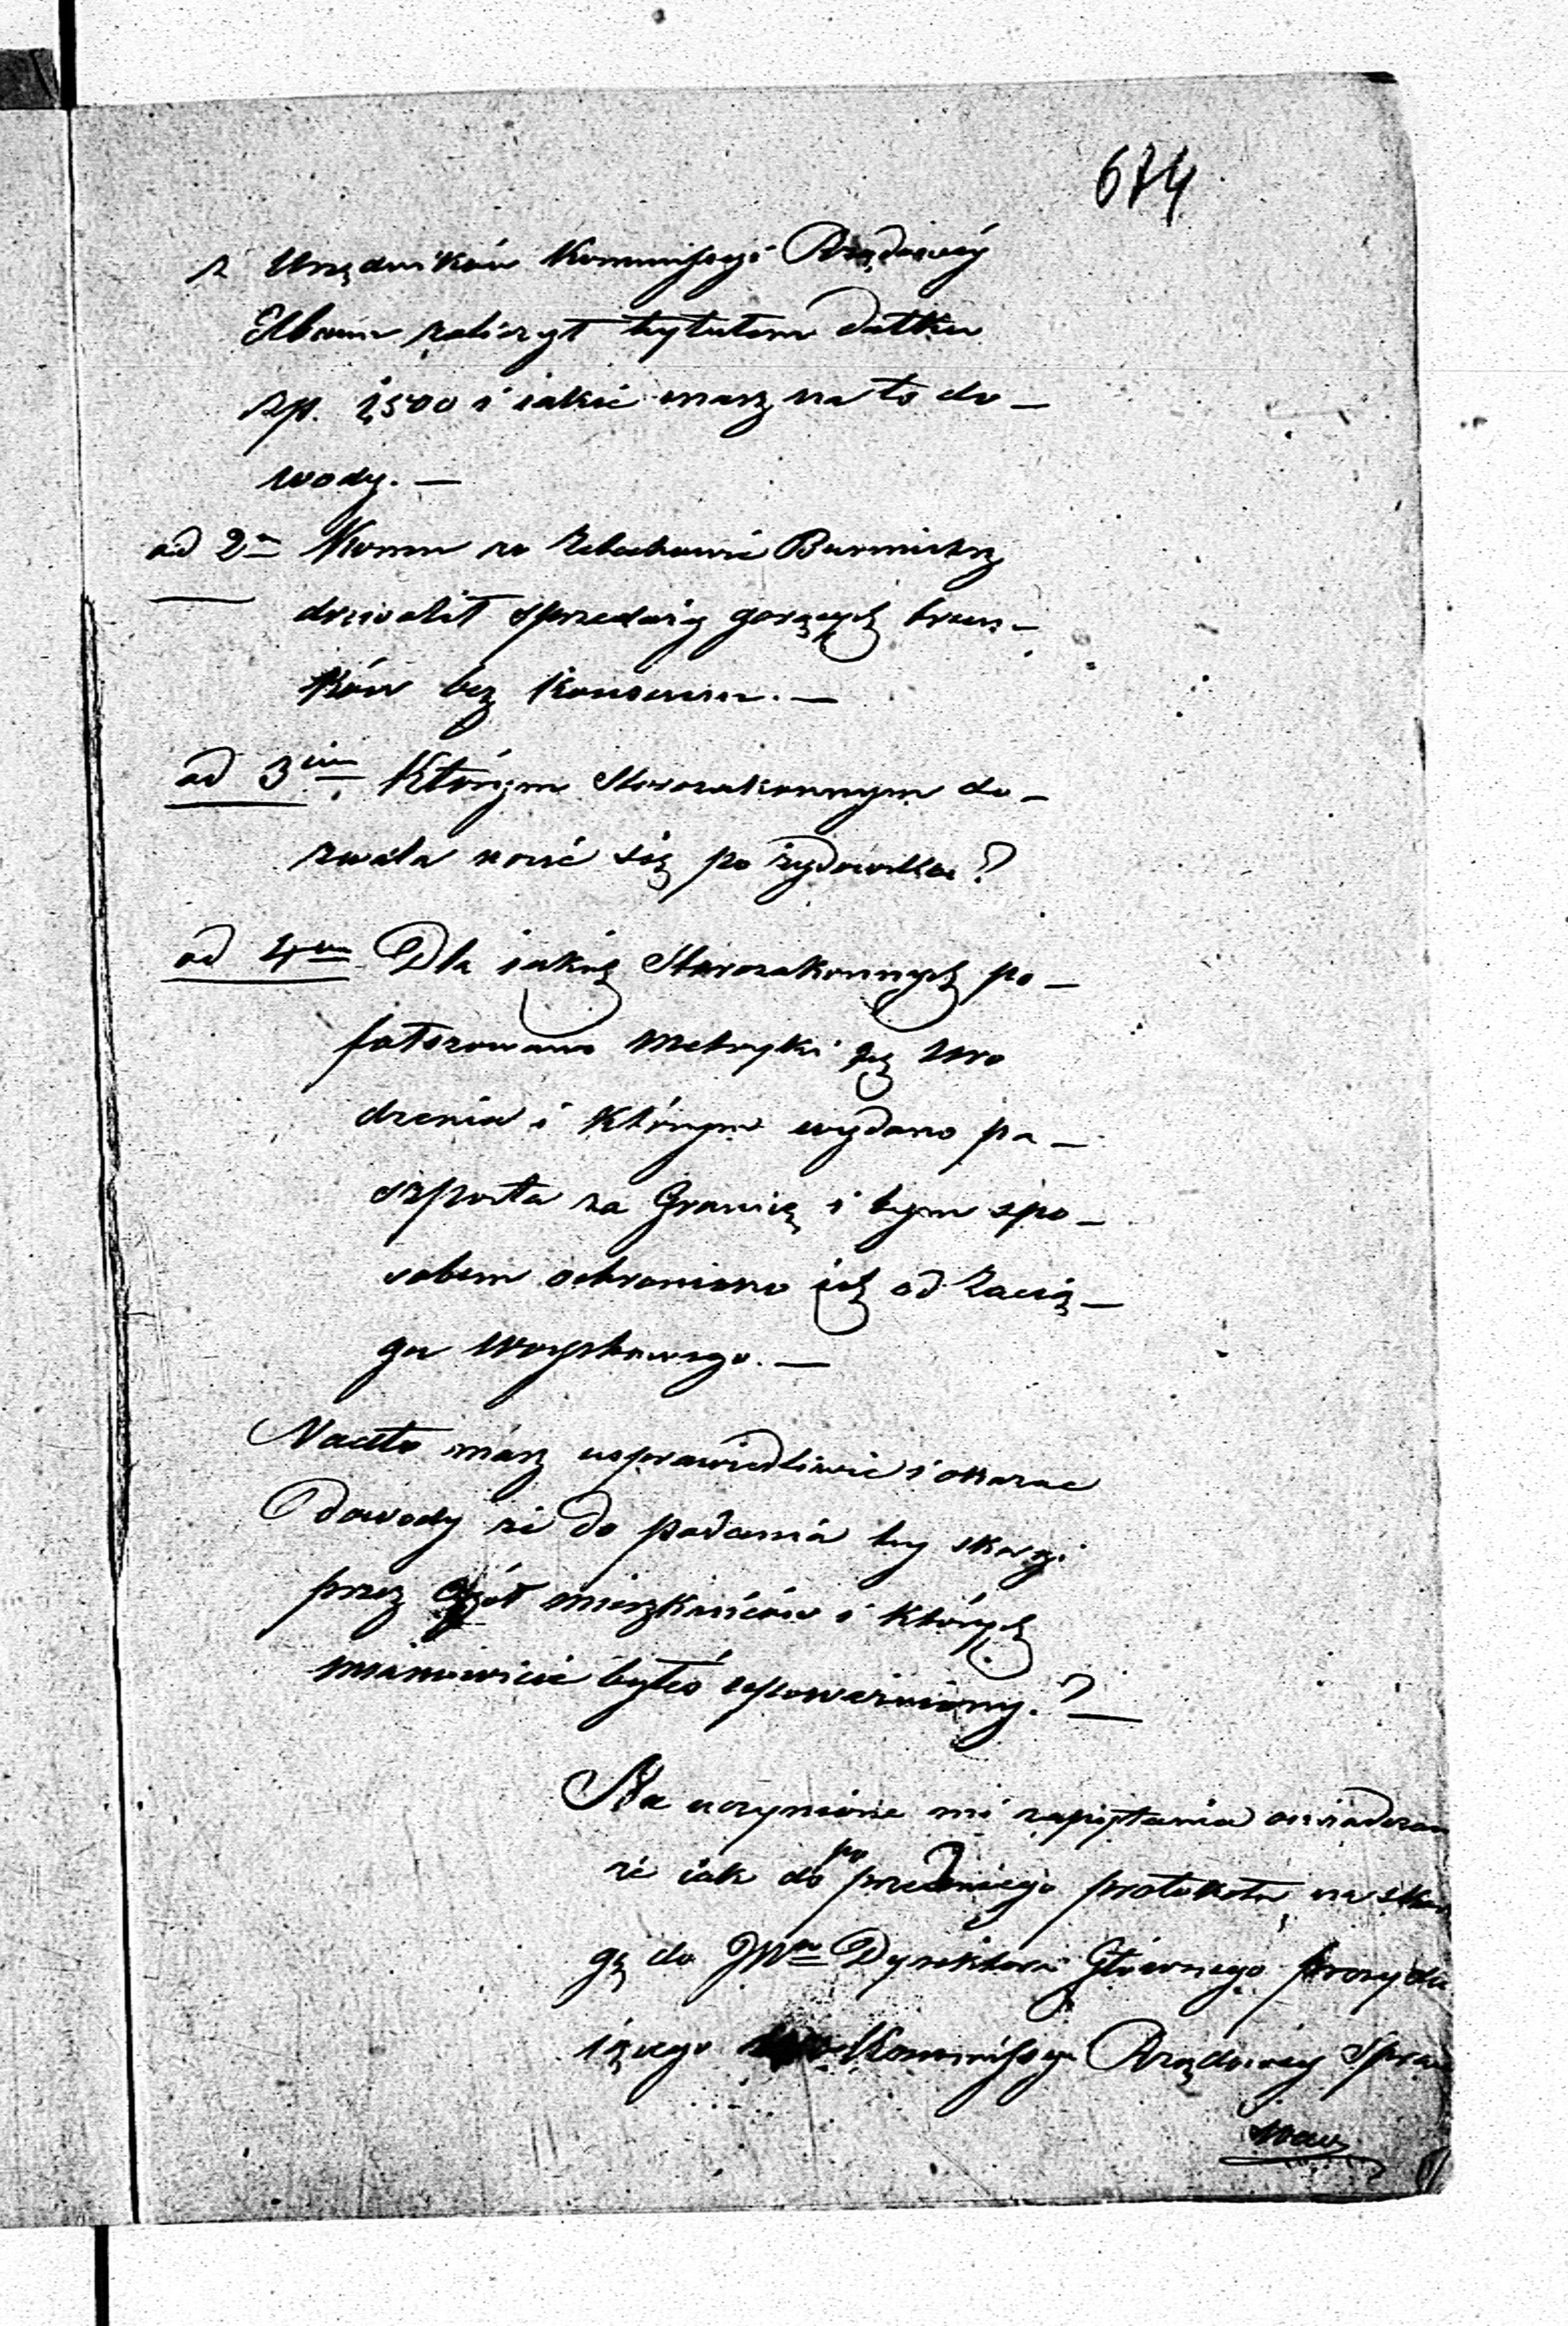 674
z Urzędników Kommissyi Rządowéy
zaliczył tytułem datku
zp. 1500 i iakie masz na to do-
wody. —
ad 2m Komu w Żelechowie Burmistrz
dozwolił sprzedaży gorących trun-
ków bez Konsensu. —
ad 3cim Którym Starozakonnym do-
zwala nosić się po żydowsku?
ad 4m Dla iakich Starozakonnych po-
fałszowano Metryki ich Uro
dzenia i którym wydano pa-
szporta za Granicę i tym spo-
sobem ochraniano ich od Zacią-
gu Woyskowego. —
Nadto masz usprawiedliwić i okazać
Dowody że do podania téy skargi
przez ogół mieszkańców i których
mianowicie byłeś upoważniony.? —
Na uczynione mi zapytania oświadczam
że iak do poprzedniego protokołu na skar
gę do JWo Dyrektora Głównego Prezydu
iącego Kommissyi Rządowéy Spraw
Wew